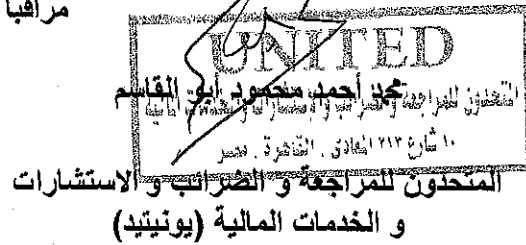 مراقبا
UNITED
محمد أحمد محمود أبو القاسم
المتحدون للمراجعة والضرائب والاستشارات والخدمات المالية
١٠ شارع ٢١٣ المعادى . القاهرة . مصر
المتحدون للمراجعة و الضرائب و الاستشارات
و الخدمات المالية (يونيتيد)